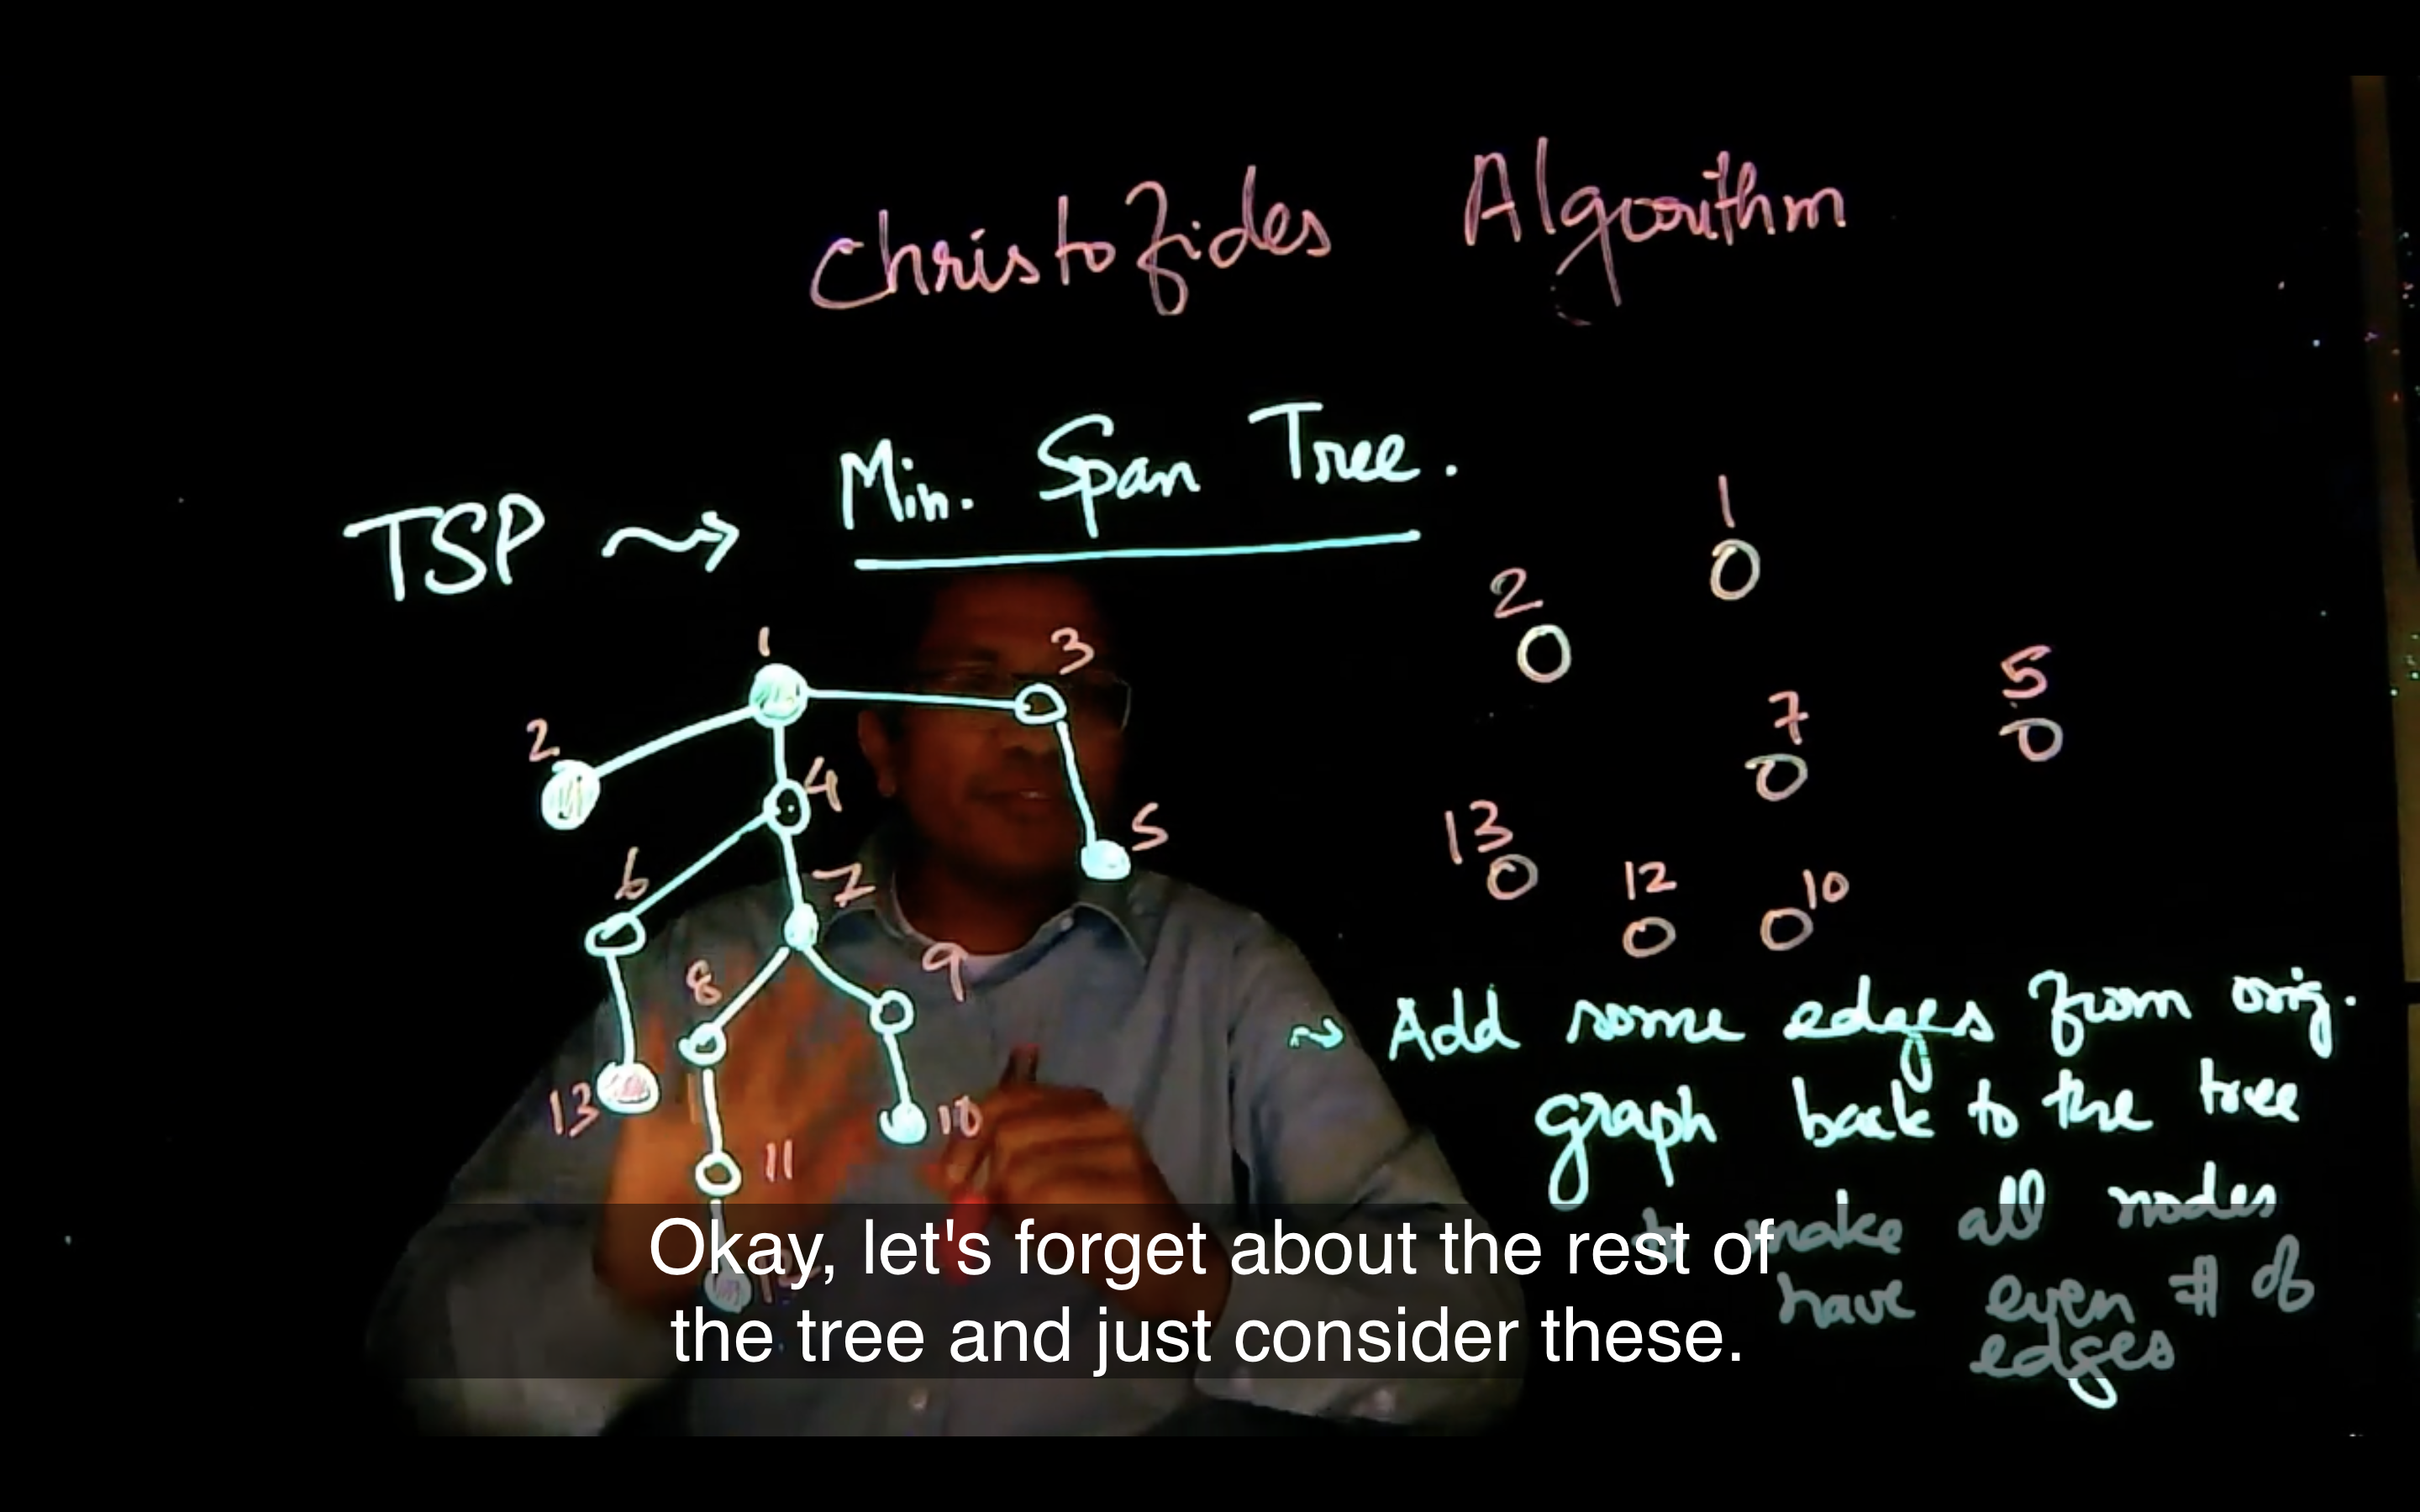 Christofides Algorithm
TSP ⇝ Min. Span Tree.
1
2
3
4
5
6
7
8
9
10
11
12
13
1
2
5
7
13
12
10
⇝ Add some edges from orig.
graph back to the tree
to make all nodes
have even # of
edges
Okay, let's forget about the rest of
the tree and just consider these.